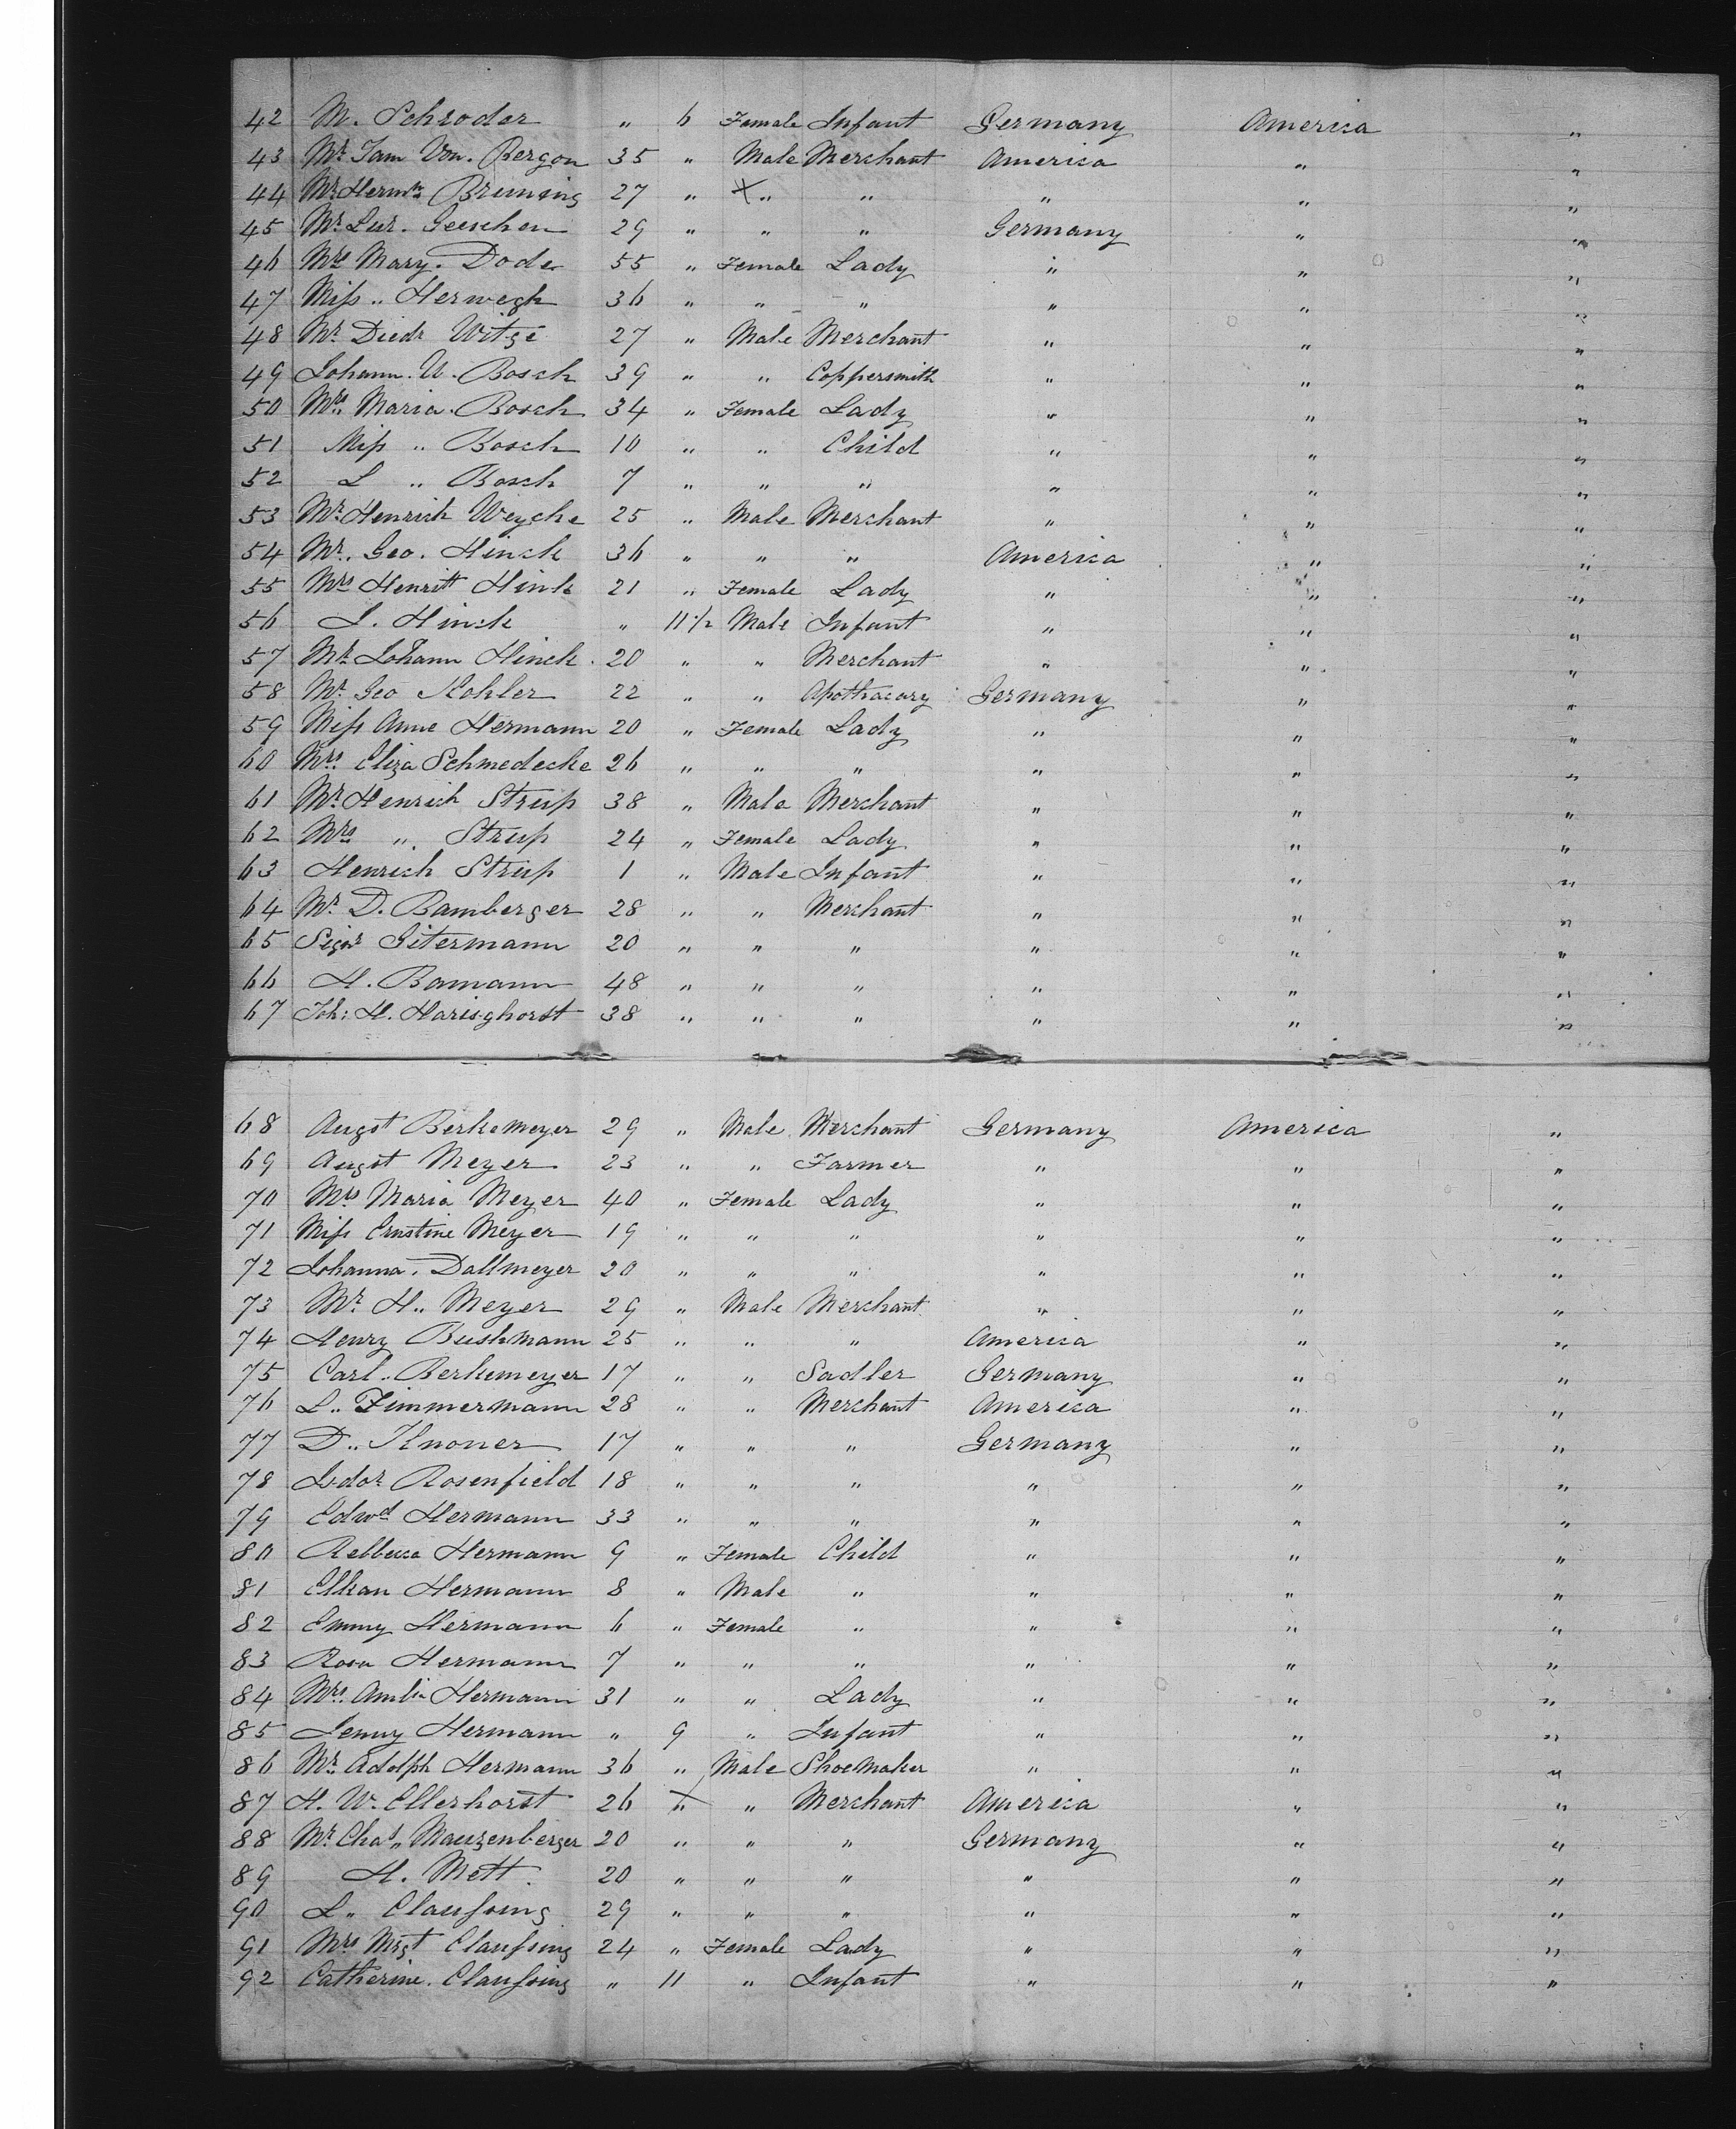 42 M. Schroder " 6 Female Infant Germany America "
43 Mr Jam Von. Bergon 35 " Male Merchant America " "
44 Mr Hermn Bruning 27 " " " " " "
45 Mr Lur. Geeschen 29 " " " Germany " "
46 Mrs Mary. Dode 55 " Female Lady " " "
47 Miss " Herwegh 36 " " " " " "
48 Mr Diedr Witge 27 " Male Merchant " " "
49 Johann. U. Bosch 39 " " Coppersmith " " "
50 Mrs Maria. Bosch 34 " Female Lady " " "
51 Miss " Bosch 10 " " Child " " "
52 L " Bosch 7 " " " " " "
53 Mr Henrich Weyche 25 " Male Merchant " " "
54 Mr. Geo. Hinck 36 " " " America " "
55 Mrs Henritt Hink 21 " Female Lady " " "
56 J. Hinck " 11 1/2 Male Infant " " "
57 Mr. Johann Hinck. 20 " " Merchant " " "
58 Mr Geo Kohler 22 " " Apothacary Germany " "
59 Miss Anne Hermann 20 " Female Lady " " "
60 Mrs. Eliza Schmedecke 26 " " " " " "
61 Mr Henrich Strup 38 " Male Merchant " " "
62 Mrs " Strup 24 " Female Lady " " "
63 Henrich Strup 1 " Male Infant " " "
64 Mr D. Bamberger 28 " " Merchant " " "
65 Sigr Gitermann 20 " " " " " "
66 H. Bamann 48 " " " " " "
67 Joh: H. Harisghorst 38 " " " " " "
68 Augst Berkemeyer 29 " Male Merchant Germany America "
69 Augst Meyer 23 " " Farmer " " "
70 Mrs Maria Meyer 40 " Female Lady " " "
71 Miss Ernstine Meyer 19 " " " " " "
72 Johanna. Dallmeyer 20 " " " " " "
73 Mr H.. Meyer 29 " Male Merchant " " "
74 Henry Bushmann 25 " " " America " "
75 Carl.. Berkemeyer 17 " " Sadler Germany " "
76 L.. Zimmermann 28 " " Merchant America " "
77 D.. Knoner 17 " " " Germany " "
78 Isdor Rosenfield 18 " " " " " "
79 Edwd Hermann 33 " " " " " "
80 Rebbeca Hermann 9 " Female Child " " "
81 Elkan Hermann 8 " Male " " " "
82 Emmy Hermann 6 " Female " " " "
83 Rosa Hermann 7 " " " " " "
84 Mrs. Amlia Hermann 31 " " Lady " " "
85 Jenny Hermann " 9 " Infant " " "
86 Mr Adolph Hermann 36 " Male Shoemaker " " "
87 H. W. Ellerhorst 26 " " Merchant America " "
88 Mr Chas " Mauzenberger 20 " " " Germany " "
89 H. Mett 20 " " " " " "
90 L. Claussing 29 " " " " " "
91 Mrs Mrgt Claussing 24 " Female Lady " " "
92 Catherine. Claussing " 11 " Infant " " "